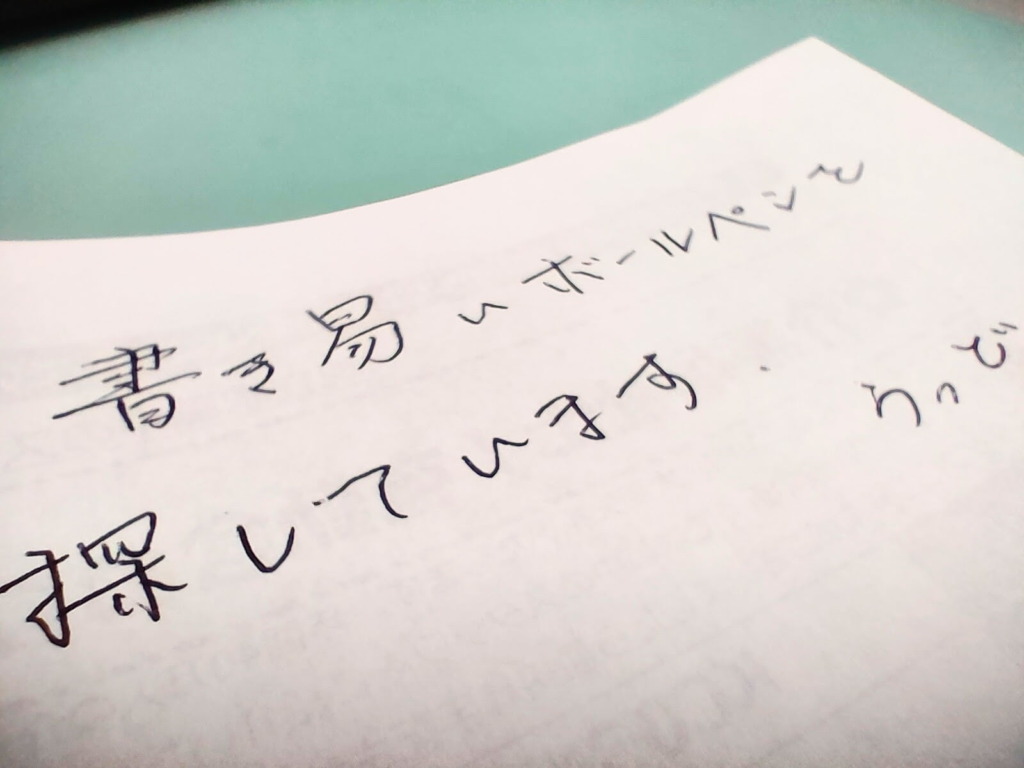 書き易いボールペンを
探しています. うっど